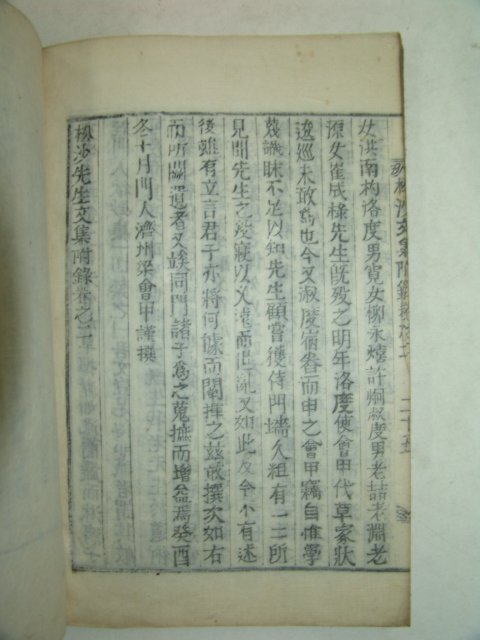 女洪南杓洛度男寬女柳永熺許炯叔度男老喆老淵老
源女崔成祿先生旣歿之明年洛度使會甲代草家狀
逡巡未敢爲也今又淑度宿舂而申之會甲竊自惟學
蔑識昧不足以知先生顧嘗獲侍門墻久粗有一二所
見聞先生之葬寢以又遠而他說又如此及今不有述
後雖有立言君子亦將何據而闡揮之玆敢撰次如右
而所闕遺者又竢同門諸子爲之蒐摭而增益焉癸酉
冬十月門人濟州梁會甲謹撰
松沙先生文集附錄卷之二
松沙文集附錄卷之二
二十五